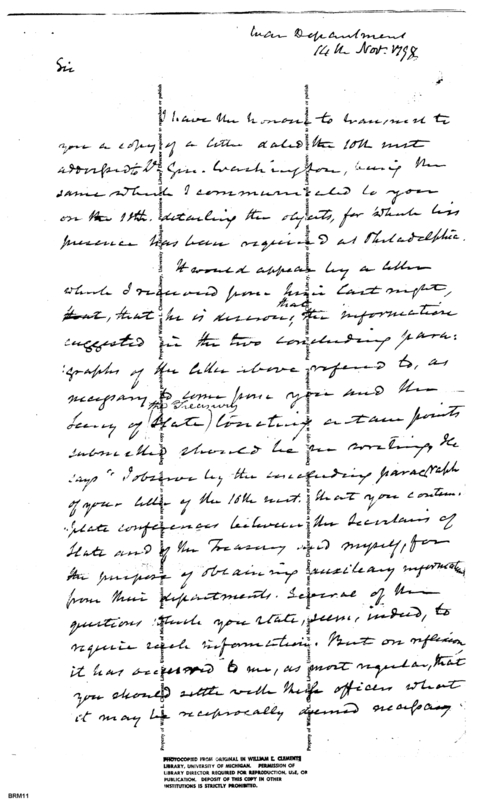 War Department
14th Nov. 1798
Sir
I have the honour to transmit to
you a copy of a letter dated the 10th inst
addressed to Lt. Gen. Washington, being the
same which I communicated to you
on the detailing the objects, for which his
presence has been required at Philadelphia.
It would appear by a letter
which I received from him last night,
that, that he is desirous, that the information
suggested in the two concluding para:
graphs of the letter above referred to, as
necessary to come from you and the
Secry of State (the Treasury) touching certain points
submitted should be in writing, He
says "I observe by the concluding paragraph
of your letter of the 10th inst. that you contem:
plate conferences between the Secretaries of
State and of the Treasury and myself, for
the purpose of obtaining auxiliary information
from their departments. Several of the
questions which you state, seem, indeed, to
require such information. But on reflexion
it has occurred to me, as most regular, that
you should settle with those officers what
it may be reciprocally deemed necessary
PHOTOCOPIED FROM ORIGINAL IN WILLIAM L. CLEMENTS
LIBRARY, UNIVERSITY OF MICHIGAN. PERMISSION OF
LIBRARY DIRECTOR REQUIRED FOR REPRODUCTION, USE, OR
PUBLICATION. DEPOSIT OF THIS COPY IN OTHER
INSTITUTIONS IS STRICTLY PROHIBITED.
BRM11